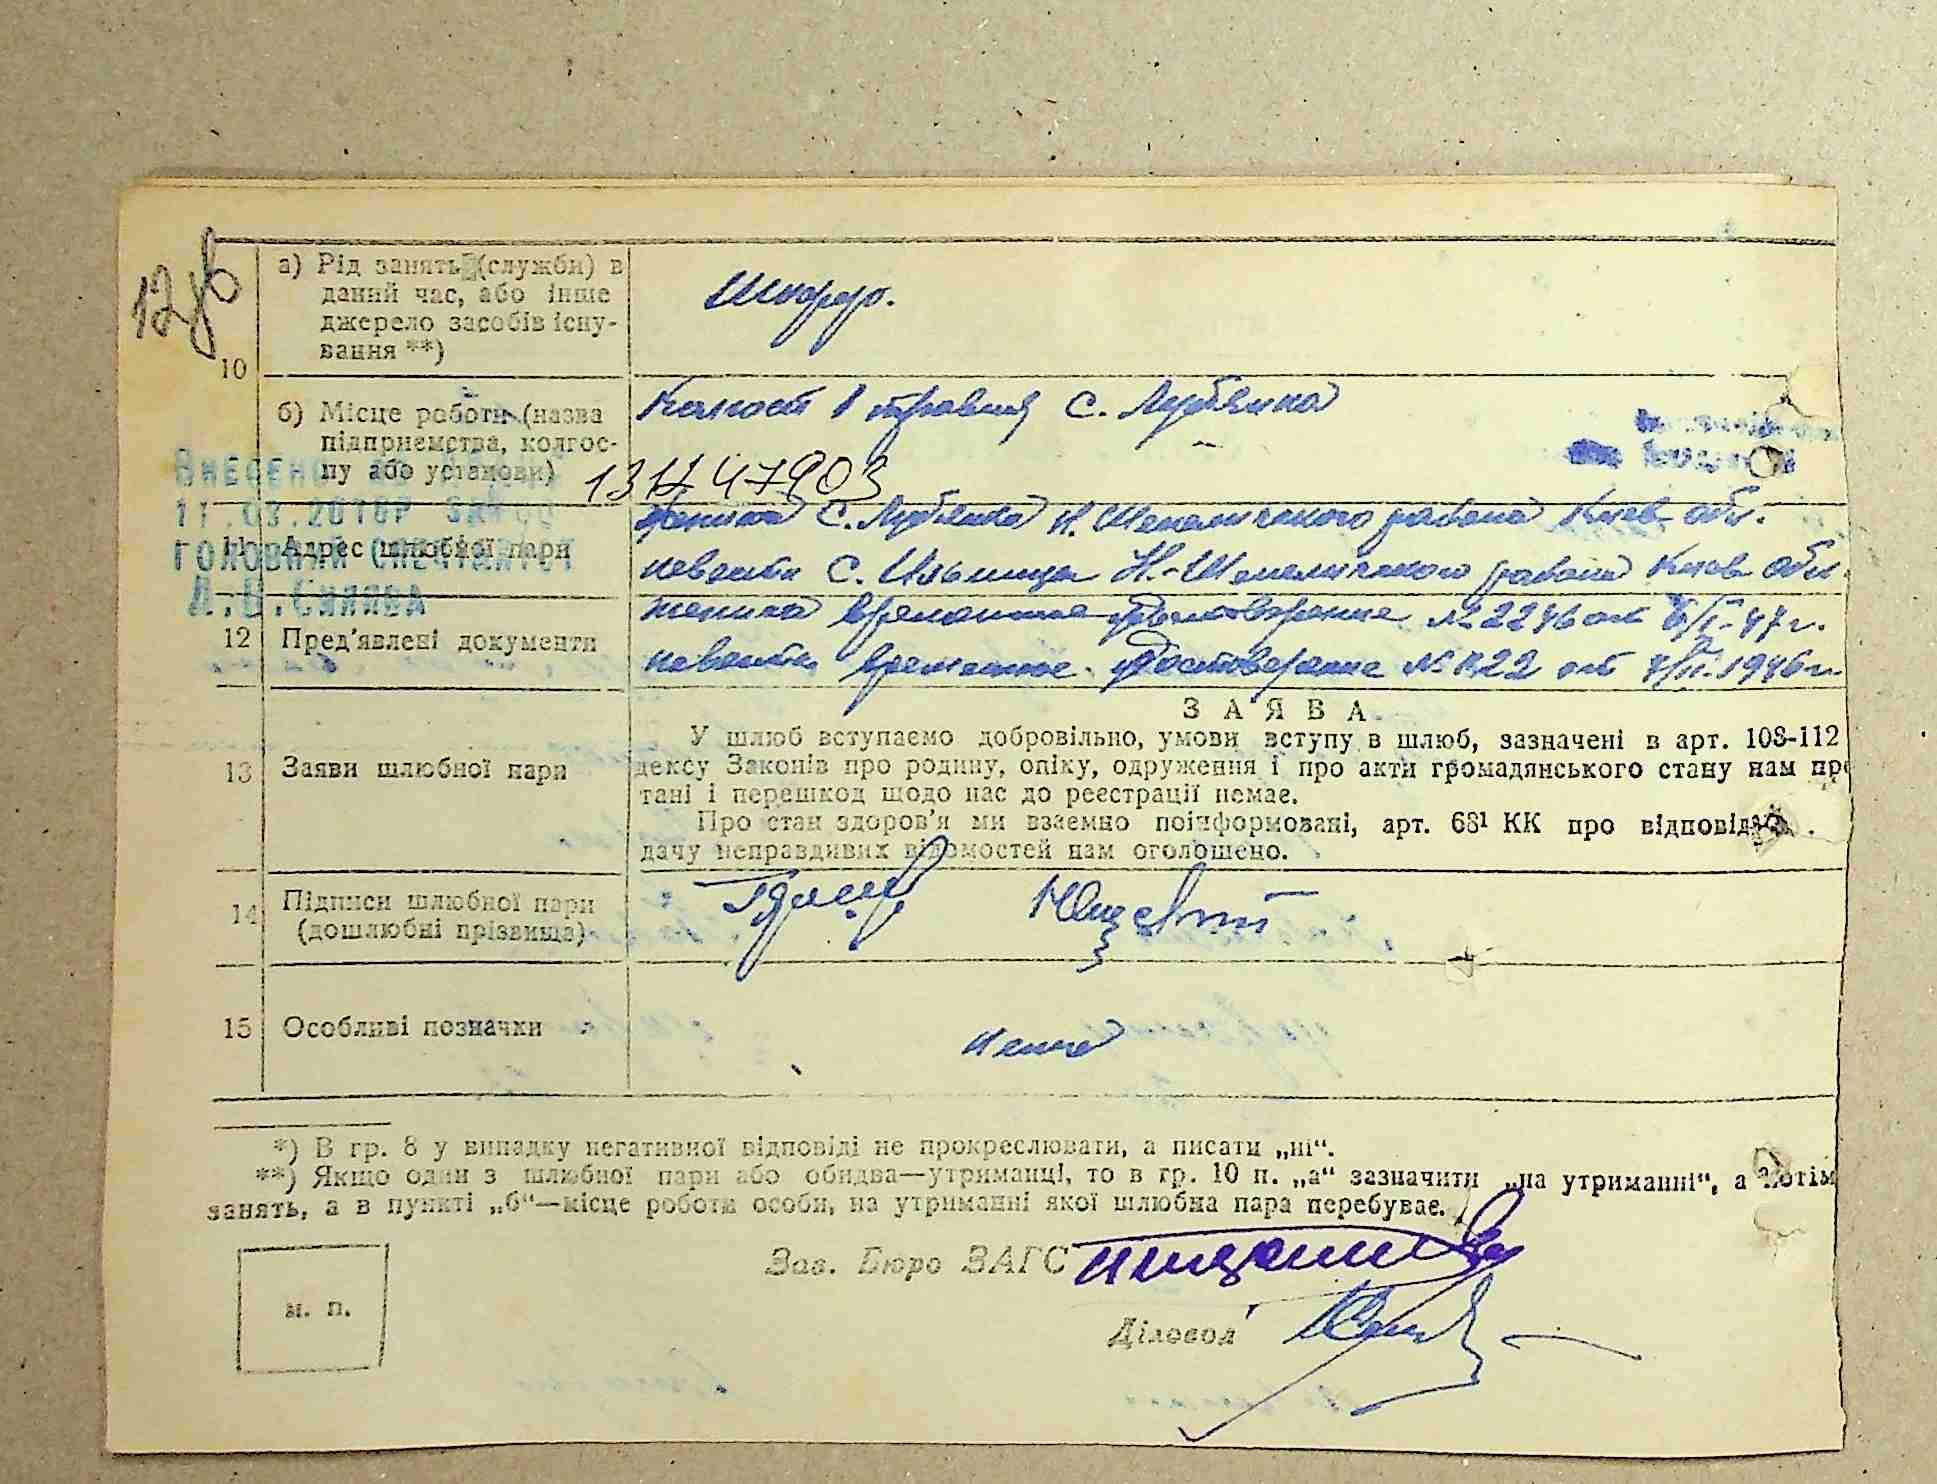 12 зв
10
а) Рід занять (служби) в
даний час, або інше
джерело засобів існу-
вання **)
Шофер.
б) Місце роботи (назва
підприємства, колгос-
пу або установи)
Колгосп 1 травня С. Луб'янка
13147903
ВНЕСЕНО
11.03.2010Р
ГОЛОВНИЙ СПЕЦІАЛІСТ
11 Адрес шлюбної пари
жениха С. Луб'янка Н. Шепелицкого района Киев. обл.
невести С. Ильинцы Н.-Шепелицкого района Киев обл.
12 Пред'явлені документи
жениха временное удостоверение № 2246 от 6/I-47 г.
невести временное удостоверение № 1122 от 4/II. 1946 г.
13 Заяви шлюбної пари
ЗАЯВА
У шлюб вступаємо добровільно, умови вступу в шлюб, зазначені в арт. 108-112
дексу Законів про родину, опіку, одруження і про акти громадянського стану нам про
тані і перешкод щодо нас до реєстрації немає.
Про стан здоров'я ми взаємно поінформовані, арт. 68¹ КК про відповід
дачу неправдивих відомостей нам оголошено.
14 Підписи шлюбної пари
(дошлюбні прізвища)
15 Особливі позначки
Нема
*) В гр. 8 у випадку негативної відповіді не прокреслювати, а писати „ні“.
**) Якщо один з шлюбної пари або обидва—утриманці, то в гр. 10 п. „а“ зазначити „на утриманні“, а потім
занять, а в пункті „б“—місце роботи особи, на утриманні якої шлюбна пара перебуває.
Зав. Бюро ЗАГС
м. п.
Діловод